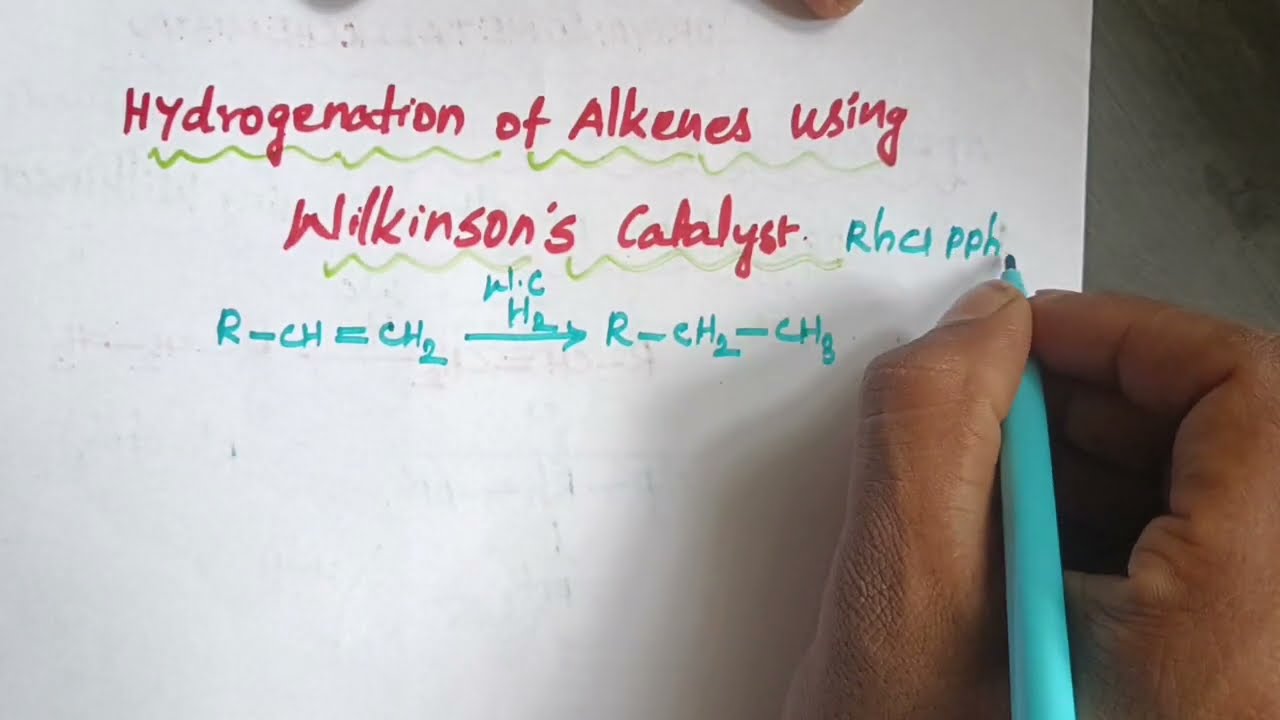 Hydrogenation of Alkenes using
Wilkinson's Catalyst. RhCl pph
W.C
H2
R-CH=CH2 → R-CH2-CH3